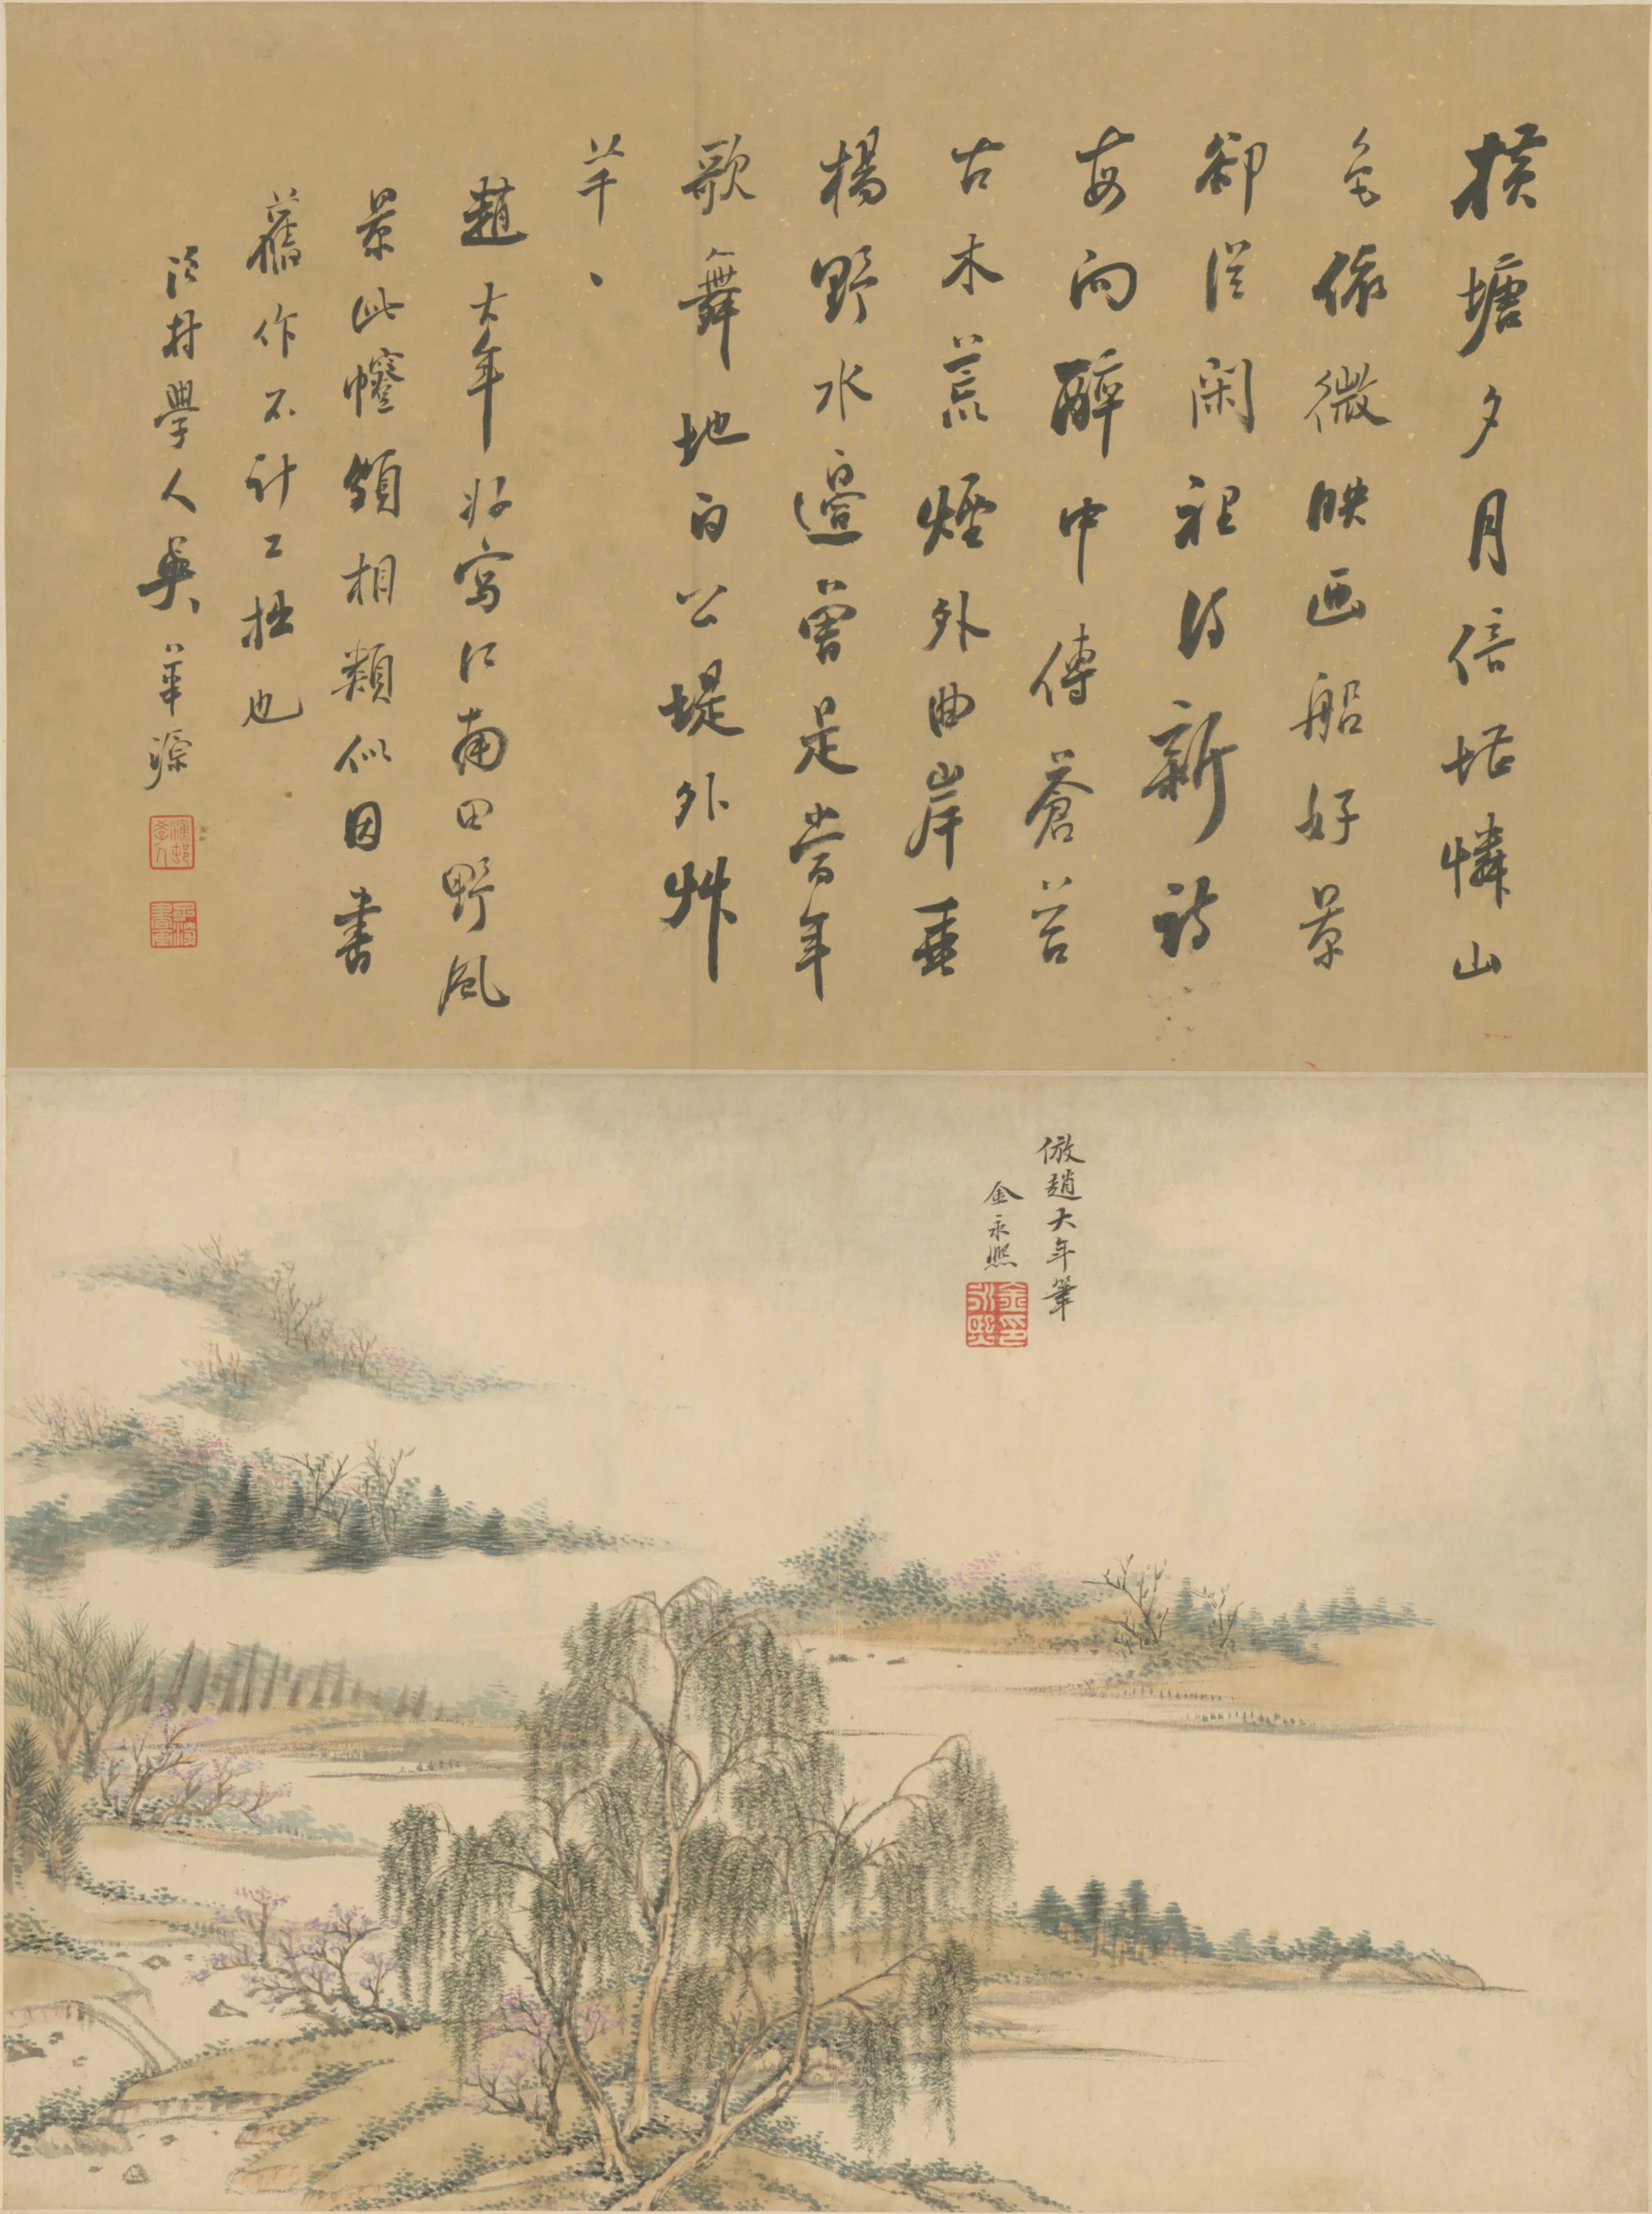 横塘夕月倍堪憐山
色依微映画船好景
卻從閑裡得新詩
每向醉中傳蒼苔
古木荒煙外曲岸垂
楊野水邊曾是當年
歌舞地白公堤外艸
芊、
趙大年好寫江南田野風
景此幀頗相類似因書
舊作不計工拙也
漁村學人吳華源
倣趙大年筆
金永熙
金永熙印